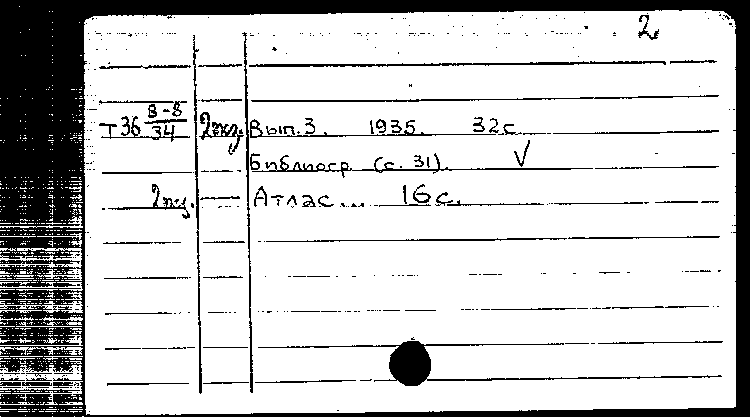 2
Т36 8-8/34 2экз. Вып. 3. 1935. 32с
Библиогр (с. 31). V
2экз. — Атлас... 16с.